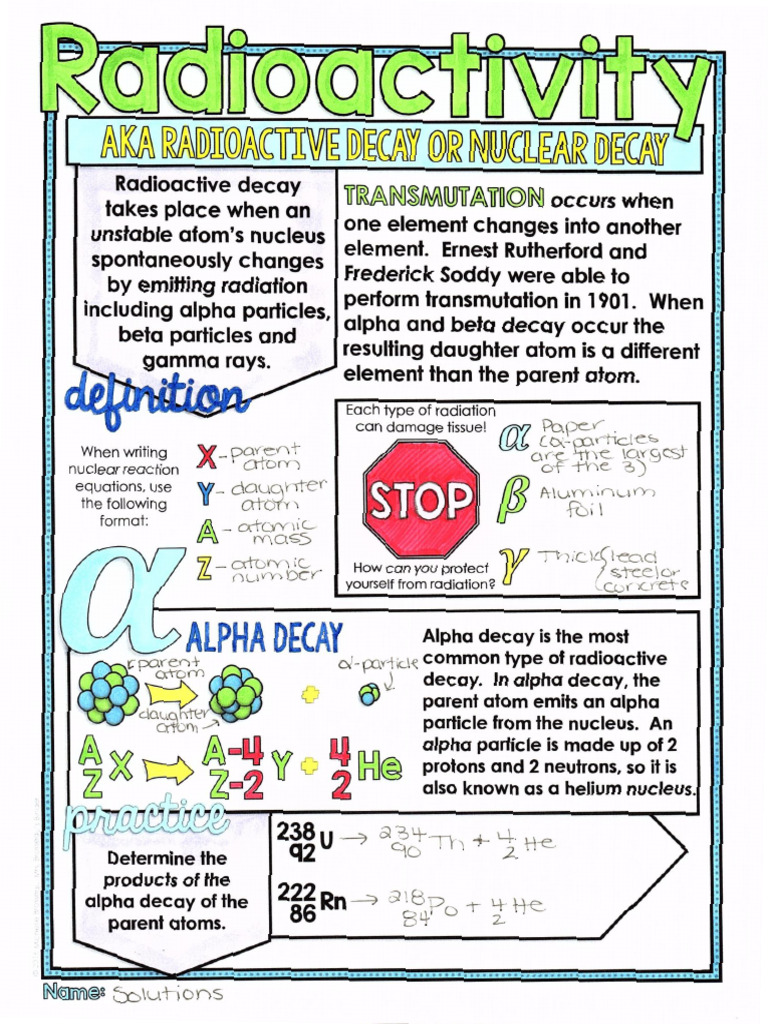 Radioactivity
AKA RADIOACTIVE DECAY OR NUCLEAR DECAY
Radioactive decay
takes place when an
unstable atom's nucleus
spontaneously changes
by emitting radiation
including alpha particles,
beta particles and
gamma rays.
definition
TRANSMUTATION occurs when
one element changes into another
element. Ernest Rutherford and
Frederick Soddy were able to
perform transmutation in 1901. When
alpha and beta decay occur the
resulting daughter atom is a different
element than the parent atom.
When writing
nuclear reaction
equations, use
the following
format:
X - parent
atom
Y - daughter
atom
A - atomic
mass
Z - atomic
number
Each type of radiation
can damage tissue!
STOP
How can you protect
yourself from radiation?
α Paper
(α-particles
are the largest
of the 3)
β Aluminum
foil
γ Thick (lead
steel or
concrete
α ALPHA DECAY
parent
atom
daughter
atom
+
α-particle
A X → A-4 Y + 4 He
Z Z-2 2
Alpha decay is the most
common type of radioactive
decay. In alpha decay, the
parent atom emits an alpha
particle from the nucleus. An
alpha particle is made up of 2
protons and 2 neutrons, so it is
also known as a helium nucleus.
practice
Determine the
products of the
alpha decay of the
parent atoms.
238 U → 234 Th + 4 He
92 90 2
222 Rn → 218 Po + 4 He
86 84 2
Name: Solutions